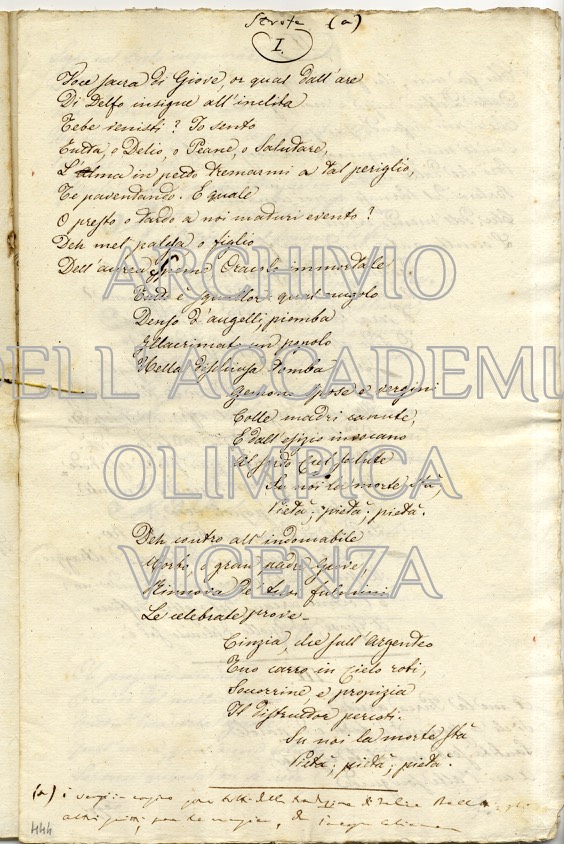 Strofa (a)
I.
Voce sacra di Giove, or qual dall'are
Di Delfo insigne all'inclita
Tebe venisti? Io sento
Tutta, o Delio, o Peane, o Salutare,
L'alma in petto tremarmi a tal periglio,
Te paventando. E quale
O presto o tardo a noi maturi evento?
Deh mel palesa o figlio
Dell'aurea Speme Oracolo immortale
Tutto è squallor: qual nugolo
Denso d'augelli, piomba
Illacrimato un popolo
Nella dischiusa tomba
Gemono spose e vergini
Colle madri canute,
E dall'efizio invocano
Al sordo Ciel salute
Su noi la morte stà,
Pietà, pietà, pietà.
Deh contro all'indomabile
Morbo, o gran padre Giove,
Rinnova de' tuoi fulmini
Le celebrate prove –
Cinzia, che sull'Argenteo
Tuo carro in Cielo roti,
Soccorrine, e propizia
Il distruttor percoti.
Su noi la morte stà
Pietà, pietà, pietà.
(a) i versi in
altri
444
ARCHIVIO
DELL'ACCADEMI
OLIMPICA
VICENZA